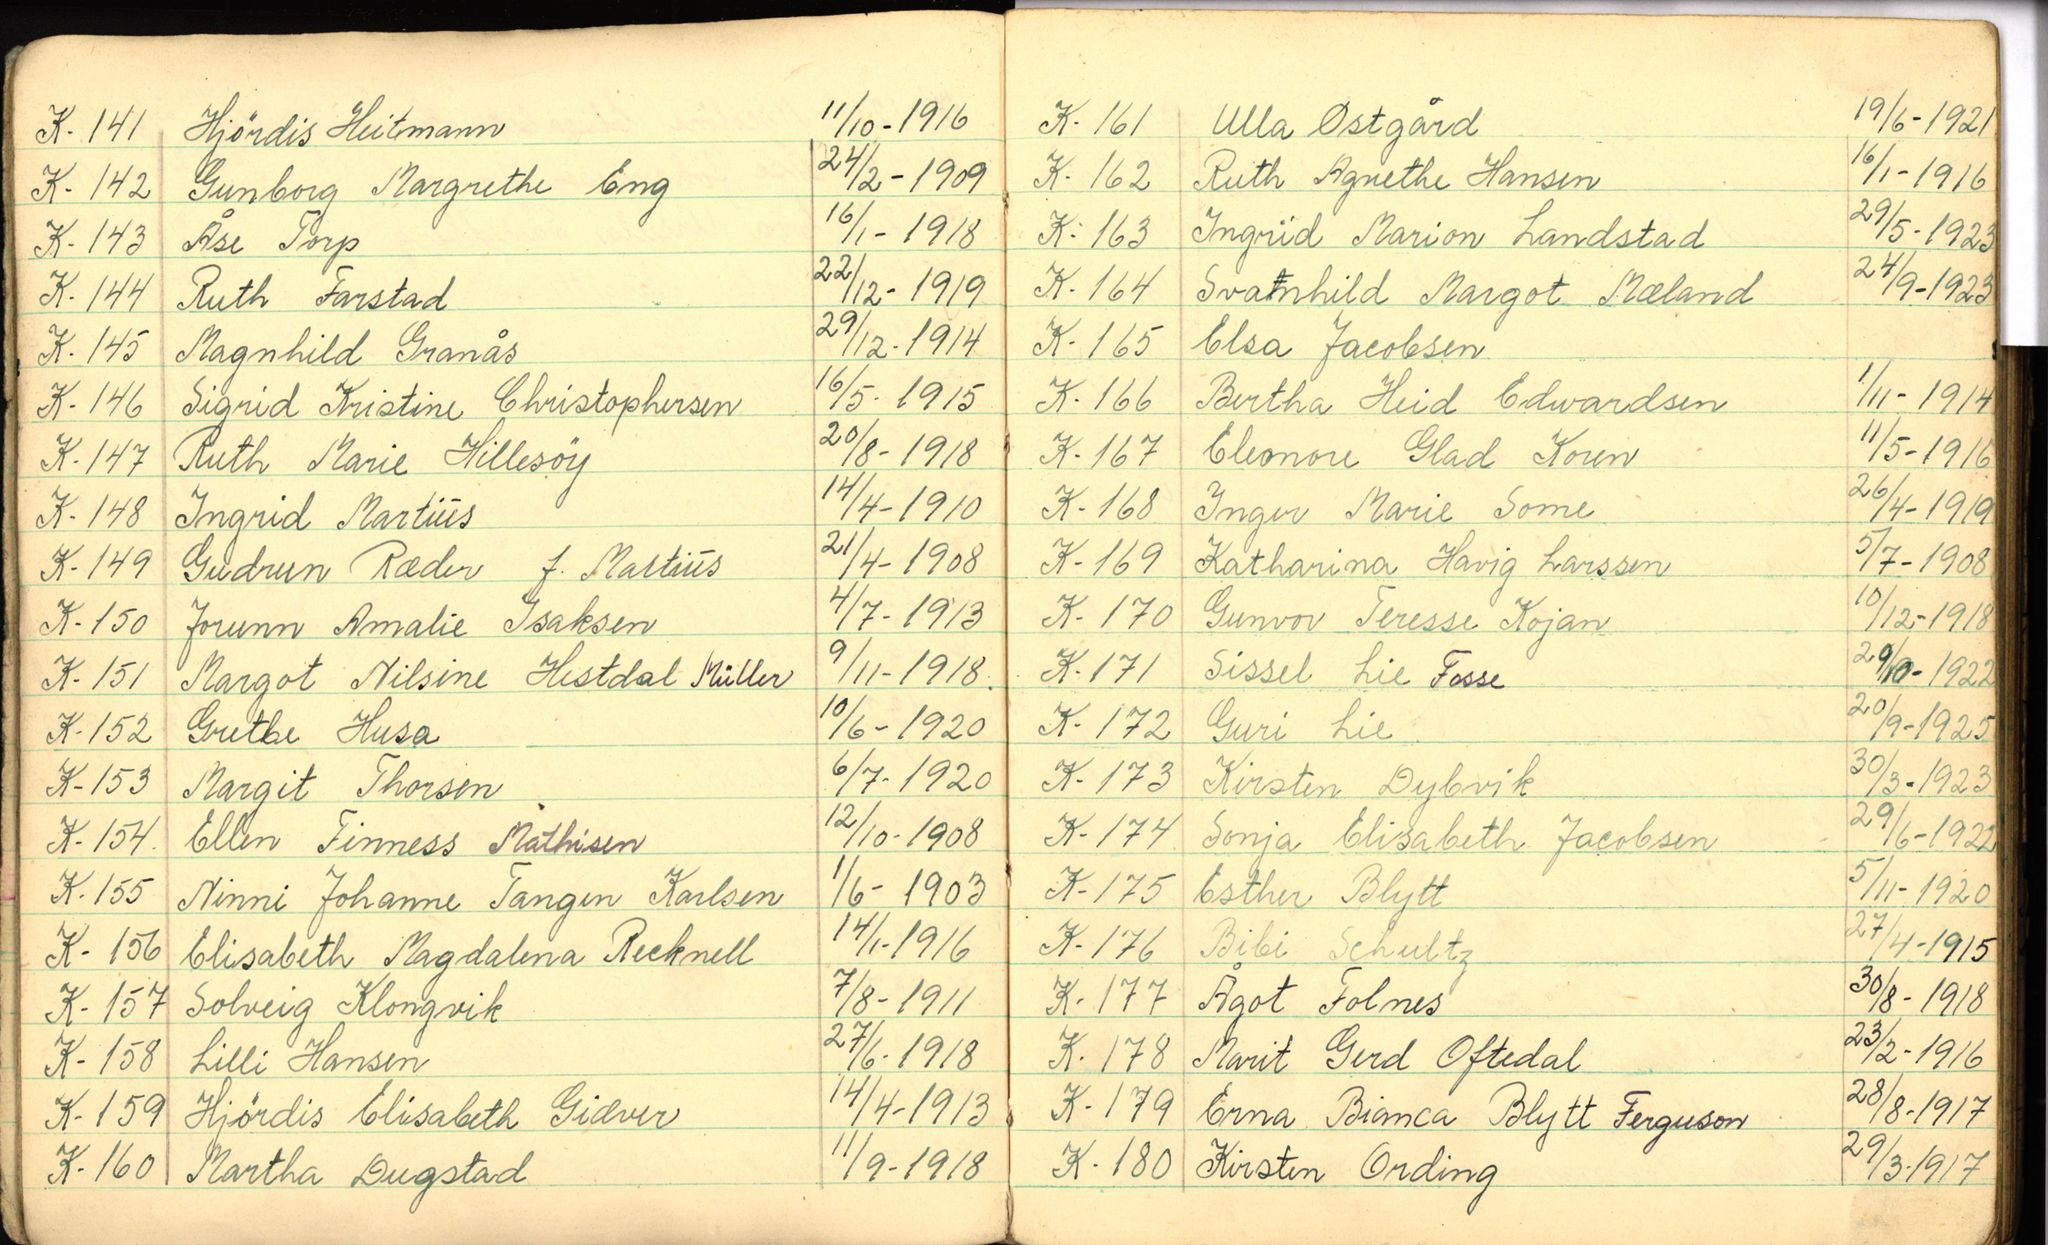 K-141 Hjördis Heitmann 11/10-1916
K-142 Gunborg Margrethe Eng 24/2-1909
K-143 Åse Torp 16/1-1918
K-144 Ruth Farstad 22/12-1919
K-145 Magnhild Granås 29/12-1914
K-146 Sigrid Kristine Christophersen 16/5-1915
K-147 Ruth Marie Hillesöy 20/8-1918
K-148 Ingrid Martiüs 14/4-1910
K-149 Gudrun Ræder f. Martiüs 21/4-1908
K-150 Jorunn Amalie Isaksen 4/7-1913
K-151 Margot Nilsine Hestdal Müller 9/11-1918.
K-152 Grethe Husa 10/6-1920
K-153 Margit Thorsen 6/7-1920
K-154. Ellen Finness Mathisen 12/10-1908
K-155 Ninni Johanne Tangen Karlsen 1/6-1903
K-156 Elisabeth Magdalena Recknell 14/1-1916
K-157 Solveig Klongvik 7/8-1911
K-158 Lilli Hansen 27/6-1918
K-159 Hjördis Elisabeth Giæver 14/4-1913
K-160 Martha Dugstad 11/9-1918
K-161 Ulla Østgård 19/6-1921
K-162 Ruth Agnethe Hansen 16/1-1916
K-163 Ingrid Marion Landstad 29/5-1923
K-164 Svanhild Margot Mæland 24/9-1923
K-165 Elsa Jacobsen
K-166 Bertha Heid Edwardsen 1/11-1914
K-167 Eleonore Glad Koren 11/5-1916
K-168 Inger Marie Some 26/4-1919
K-169 Katharina Havig Larssen 5/7-1908
K-170 Gunvor Teresse Kojan 10/12-1918
K-171 Sissel Lie Fosse 29/10-1922
K-172 Guri Lie 20/9-1925
K-173 Kirsten Dybvik 30/3-1923
K-174 Sonja Elisabeth Jacobsen 29/6-1922
K-175 Esther Blytt 5/11-1920
K-176 Bibi Schultz 27/4-1915
K-177 Ågot Folnes 30/8-1918
K-178 Marit Gerd Oftedal 23/2-1916
K-179 Erna Bianca Blytt Ferguson 28/8-1917
K-180 Kirsten Ording 29/3-1917